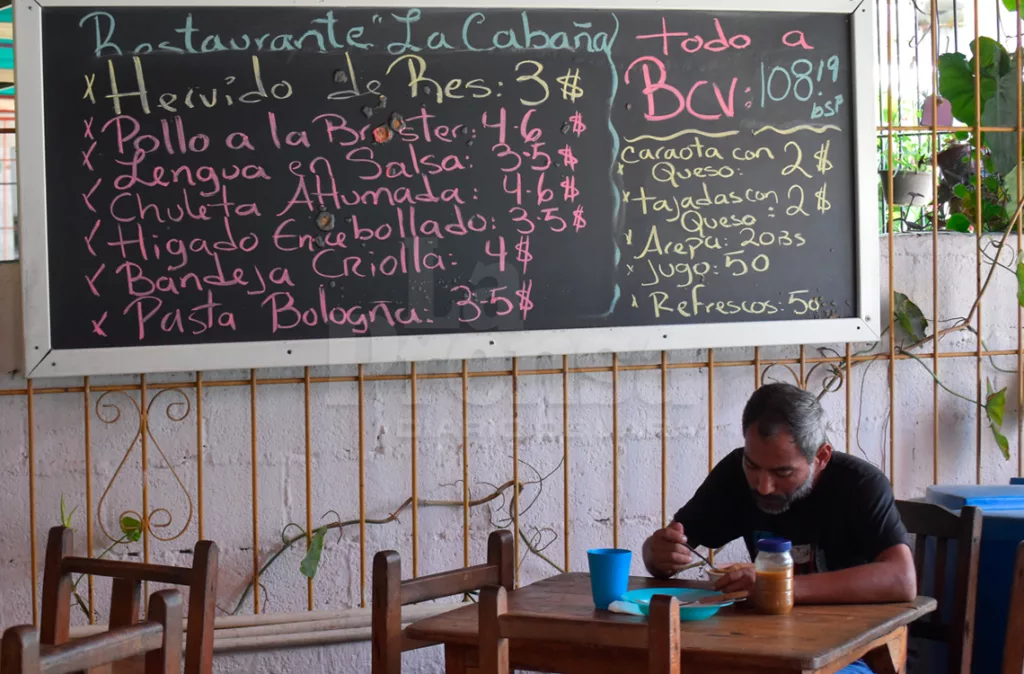 Restaurante "La Cabaña
x Hervido de Res: 3 $
x Pollo a la Broster: 4.6 $
x Lengua en Salsa: 3.5 $
✓ Chuleta AHumada: 4.6 $
✓ Higado Encebollado: 3.5 $
✓ Bandeja Criolla: 4 $
x Pasta Bologna: 3.5 $
todo a
BCV: 108.19
bs
caraota con
Queso: 2 $
x tajadas con
Queso: 2 $
x Arepa: 20 Bs
x Jugo: 50
x Refrescos: 50
La
Prensa